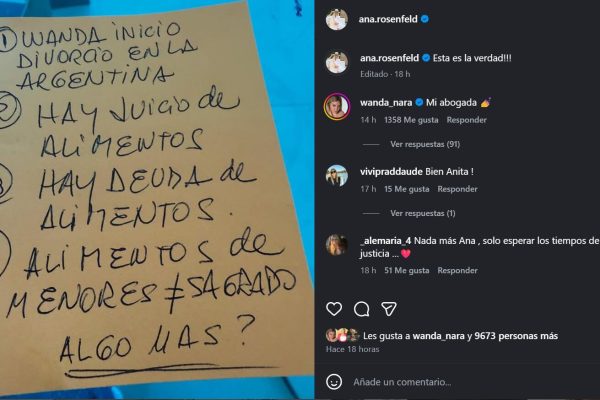 ① WANDA INICIO
DIVORCIO EN LA
ARGENTINA
② HAY JUICIO de
ALIMENTOS
3 HAY DEUDA de
ALIMENTOS.
ALIMENTOS de
MENORES ≠ SAGRADO
ALGO MAS?
ana.rosenfeld
ana.rosenfeld Esta es la verdad!!!
Editado · 18 h
wanda_nara Mi abogada 💅
14 h 1358 Me gusta Responder
Ver respuestas (91)
vivipraddaude Bien Anita !
17 h 15 Me gusta Responder
Ver respuestas (1)
_alemaria_4 Nada más Ana , solo esperar los tiempos de
justicia ... ❤️
18 h 51 Me gusta Responder
Les gusta a wanda_nara y 9673 personas más
Hace 18 horas
Añade un comentario...